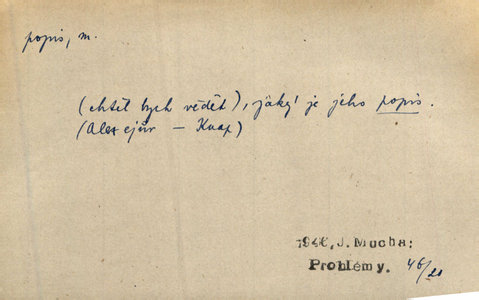 popis, m.
(chtěl bych vědět), jaký je jeho popis.
(Alexejův – Knap)
1946, J. Mucha:
Problémy. 46/21